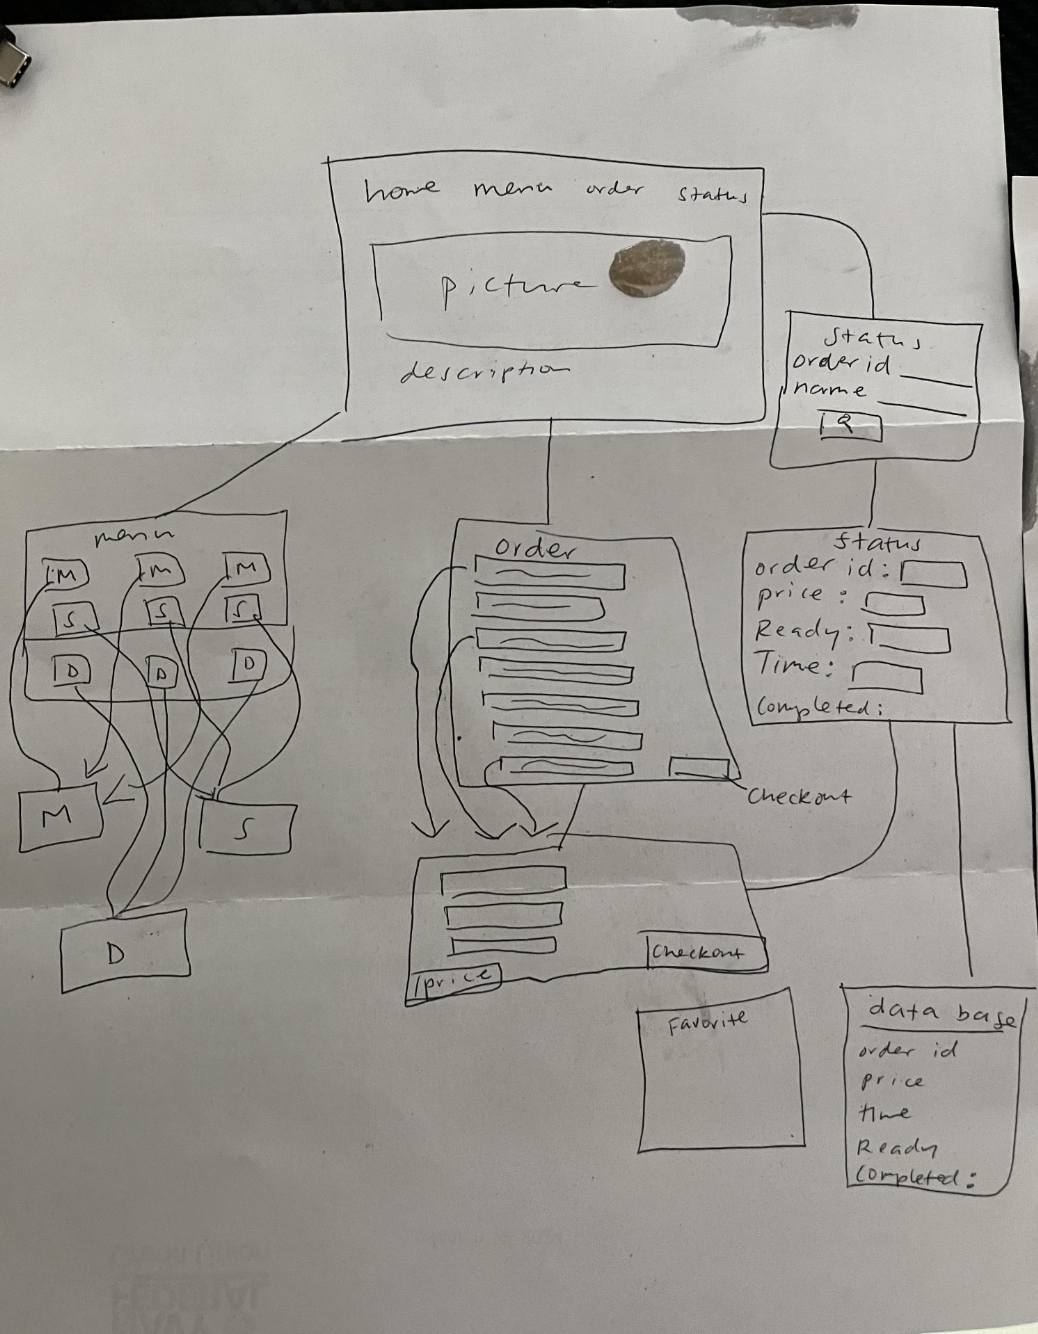 home menu order status
picture
description
status
order id
name
menu
M M M
S S S
D D D
M
S
D
order
checkout
checkout
price
status
order id:
price:
Ready:
Time:
completed:
Favorite
data base
order id
price
time
Ready
completed: